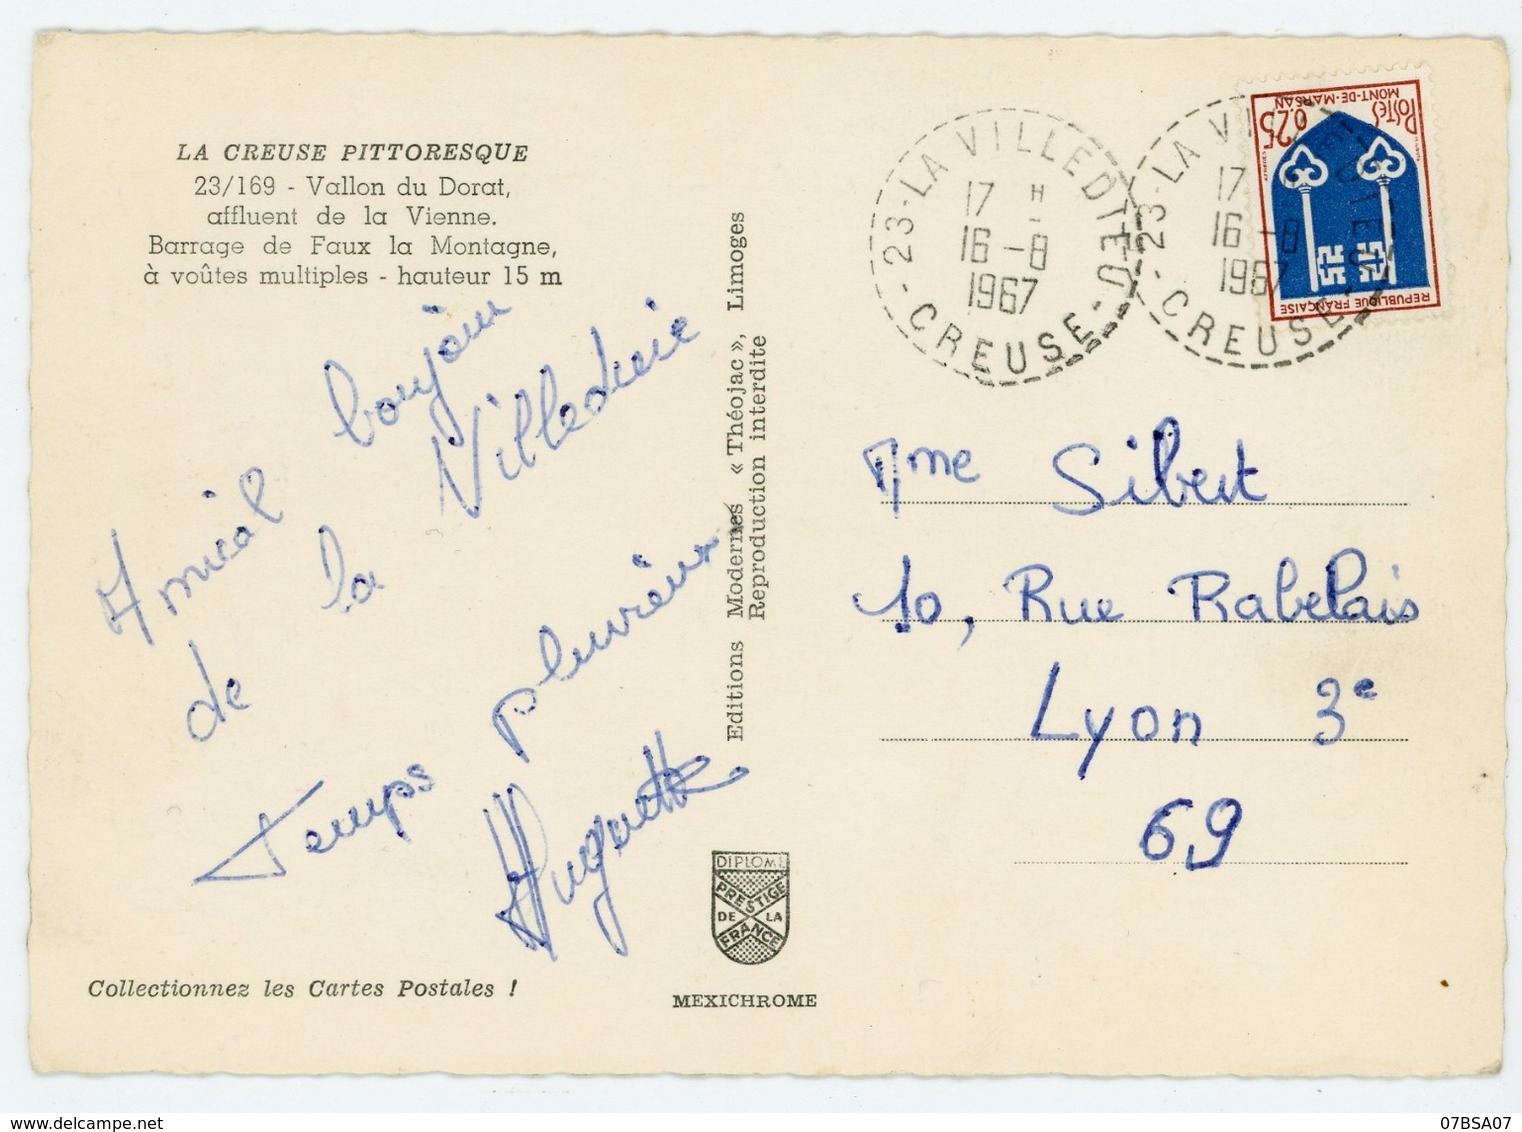 LA CREUSE PITTORESQUE
23/169 - Vallon du Dorat,
affluent de la Vienne.
Barrage de Faux la Montagne,
à voûtes multiples - hauteur 15 m
Amical bonjour
de la Villedieu
Temps pluvieux
Huguette
Collectionnez les Cartes Postales !
Editions Modernes « Théojac », Limoges
Reproduction interdite
DIPLOME
PRESTIGE
DE LA
FRANCE
MEXICHROME
23 - LA VILLEDIEU
17 H
16 - 8
1967
- CREUSE -
23 - LA VILLEDIEU
17 H
16 - 8
1967
- CREUSE -
POSTES
0,25
MONT-DE-MARSAN
REPUBLIQUE FRANÇAISE
Mme Sibert
10, Rue Rabelais
Lyon 3e
69
07BSA07